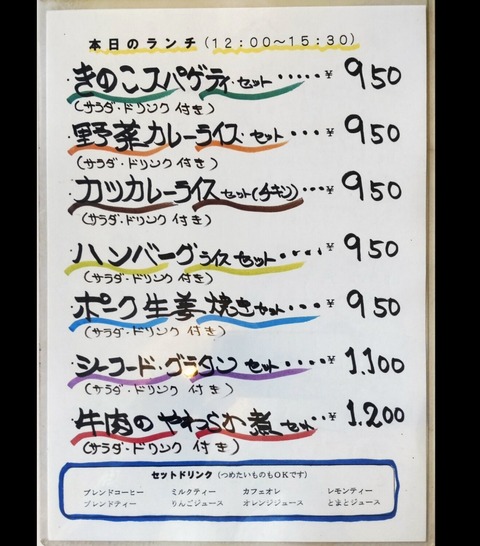 本日のランチ(12:00〜15:30)
・きのこスパゲティセット・・・・・¥950
(サラダ・ドリンク付き)
・野菜カレーライス・セット・・・¥950
(サラダ・ドリンク付き)
・カツカレーライスセット(チキン)・・・¥950
(サラダ・ドリンク付き)
・ハンバーグライスセット・・・・・¥950
(サラダ・ドリンク付き)
・ポーク生姜焼きセット・・・¥950
(サラダ・ドリンク付き)
・シーフード・グラタンセット・・・・¥1.100
(サラダ・ドリンク付き)
・牛肉のやわらか煮セット・・¥1.200
(サラダ・ドリンク付き)
セットドリンク(つめたいものもOKです)
ブレンドコーヒー ミルクティー カフェオレ レモンティー
ブレンドティー りんごジュース オレンジジュース とまとジュース